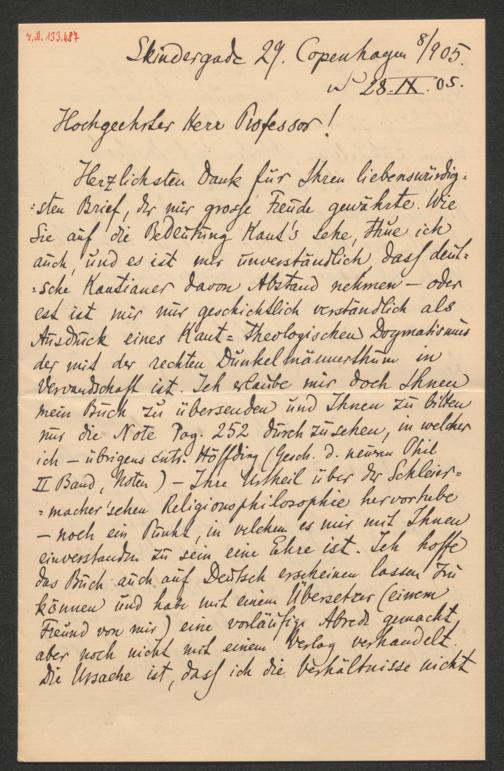 I.N. 133.687
Skindergade 29. Copenhagen 8/905.
28.IX.05.
Hochgeehrter Herr Professor!
Herzlichsten Dank für Ihren liebenswürdig=
=sten Brief, der mir grosse Freude gewährte. Wie
Sie auf die Bedeutung Kant's sehe, thue ich
auch, und es ist mir unverständlich dass deut=
=sche Kantianer davon Abstand nehmen – oder
est ist mir nur geschichtlich verständlich als
Ausdruck eines Kant=Theologischen Dogmatismus
der mit der rechten Dunkelmännerthum in
Vervandschaft ist. Ich erlaube mir doch Ihnen
mein Buch zu übersenden und Ihnen zu bitten
nur die Note Pag. 252 durchzusehen, in welcher
ich – übrigens cntr. Höffding (Gesch. d. neueren Phil
II Band, Noten) – Ihre Urtheil über der Schleier=
=macher'schen Religionsphilosophie hervorhebe
– noch ein Punkt, in velchem es mir mit Ihnen
einverstanden zu sein eine Ehre ist. Ich hoffe
das Buch auch auf Deutsch erscheinen lassen zu
können und habe mit einem Übersetzer (einem
Freund von mir) eine vorläufige Abrede gemacht,
aber noch nicht mit einem Verlag verhandelt.
Die Ursache ist, dass ich die Verhältnisse nicht